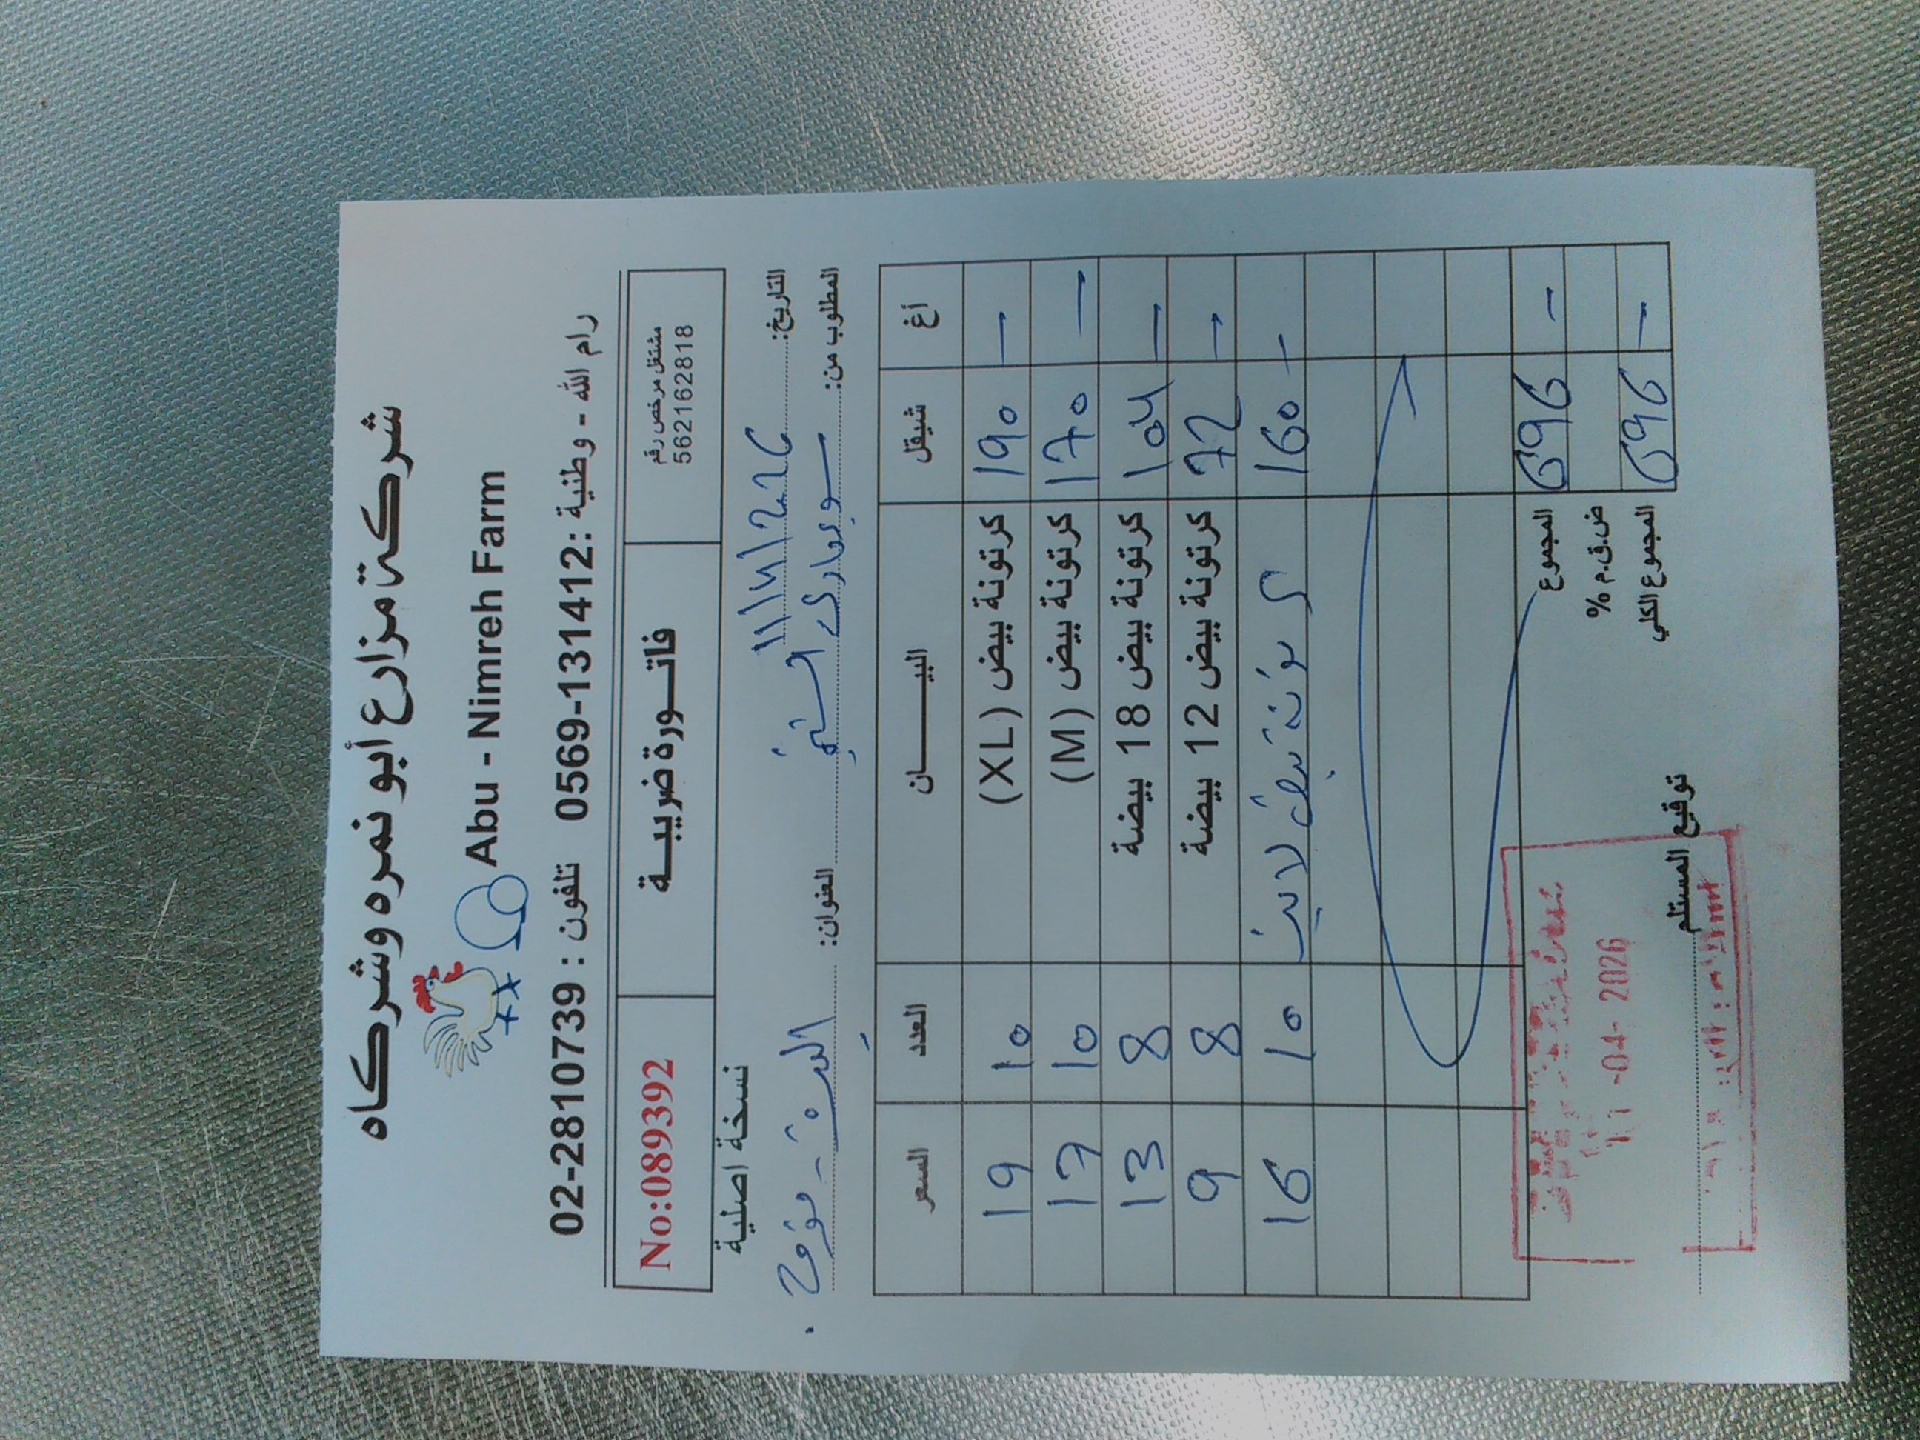 شركة مزارع أبو نمره وشركاه
Abu - Nimreh Farm
تلفون : 02-2810739 0569-131412 رام الله - وطنية :
مشتغل مرخص رقم
562162818
فاتـــورة ضريبـــة
No:089392
نسخة اصلية
التاريخ: 11/4/2026
المطلوب من: سوبرماركت العنوان: البيرة -
السعر العدد البيـــــــان شيقل أغ
19 10 كرتونة بيض (XL) 190 —
17 10 كرتونة بيض (M) 170 —
13 8 كرتونة بيض 18 بيضة 104 —
9 8 كرتونة بيض 12 بيضة 72 —
16 10 كرتونة بيض لايت 160 —
المجموع 696 —
ض.ق.م %
المجموع الكلي 696 —
توقيع المستلم
11 -04- 2026